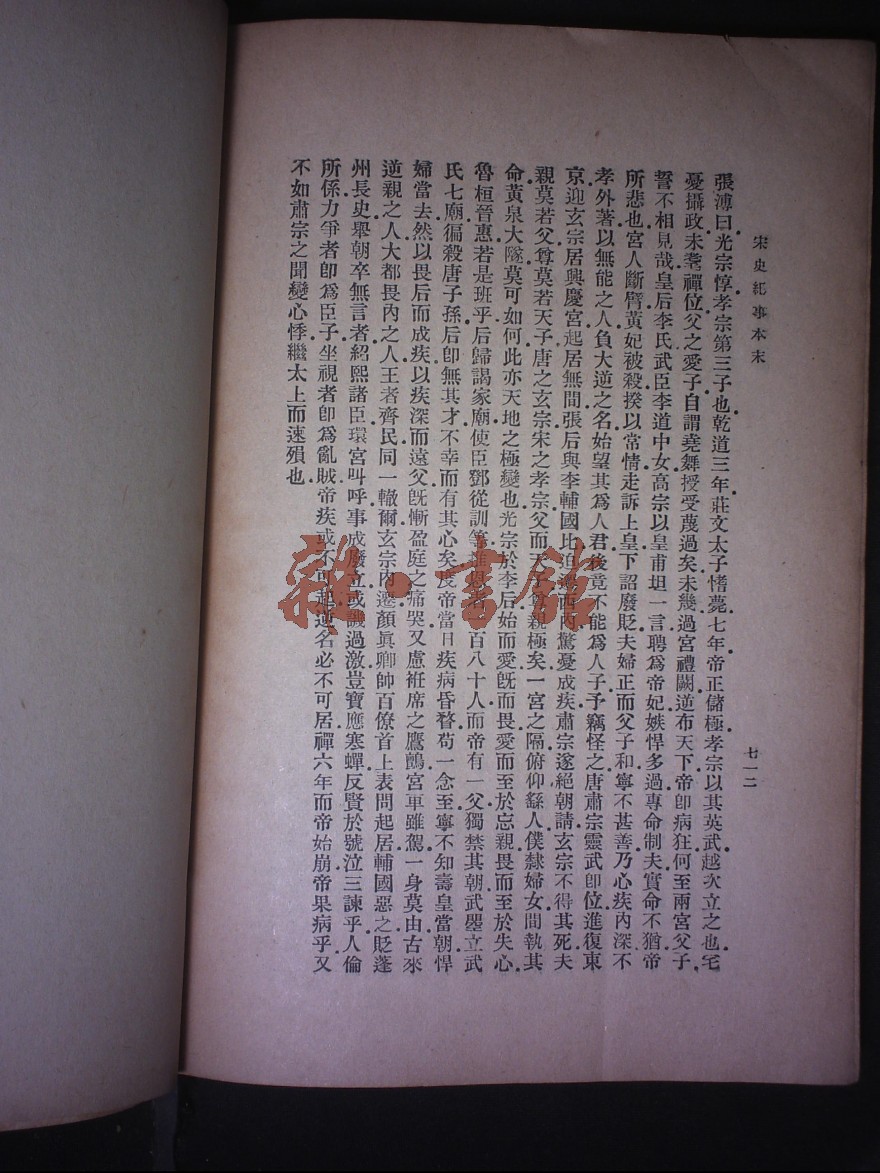 宋史紀事本末
七一二
張溥曰光宗惇孝宗第三子也乾道三年莊文太子愭薨七年帝正儲極孝宗以其英武越次立之也宅
憂攝政未耄禪位父之愛子自謂堯舜授受蔑過矣未幾過宮禮闕逆布天下帝卽病狂何至兩宮父子
誓不相見哉皇后李氏武臣李道中女高宗以皇甫坦一言聘爲帝妃嫉悍多過專命制夫實命不猶帝
所悲也宮人斷臂黃妃被殺揆以常情走訴上皇下詔廢貶夫婦正而父子和寧不甚善乃心疾內深不
孝外著以無能之人負大逆之名始望其爲人君後竟不能爲人子予竊怪之唐肅宗靈武卽位進復東
京迎玄宗居興慶宮起居無間張后與李輔國比迫遷西內驚憂成疾肅宗遂絕朝請玄宗不得其死夫
親莫若父尊莫若天子唐之玄宗宋之孝宗父而天子尊親極矣一宮之隔俯仰繇人僕隸婦女間執其
命黃泉大隧莫可如何此亦天地之極變也光宗於李后始而愛旣而畏愛而至於忘親畏而至於失心
魯桓晉惠若是班乎后歸謁家廟使臣鄧從訓等進 者 百八十人而帝有一父獨禁其朝武曌立武
氏七廟徧殺唐子孫后卽無其才不幸而有其心矣度帝當日疾病昏瞀苟一念至寧不知壽皇當朝悍
婦當去然以畏后而成疾以疾深而遠父旣慚盈庭之痛哭又慮袵席之鷹鸇宮車雖駕一身莫由古來
逆親之人大都畏內之人王者齊民同一轍爾玄宗內遷顏眞卿帥百僚首上表問起居輔國惡之貶蓬
州長史舉朝卒無言者紹熙諸臣環宮叫呼事成廢立或譏過激豈寶應寒蟬反賢於號泣三諫乎人倫
所係力爭者卽爲臣子坐視者卽爲亂賊帝疾或不可起逆名必不可居禪六年而帝始崩帝果病乎又
不如肅宗之聞變心悸繼太上而速殞也
雜·書館